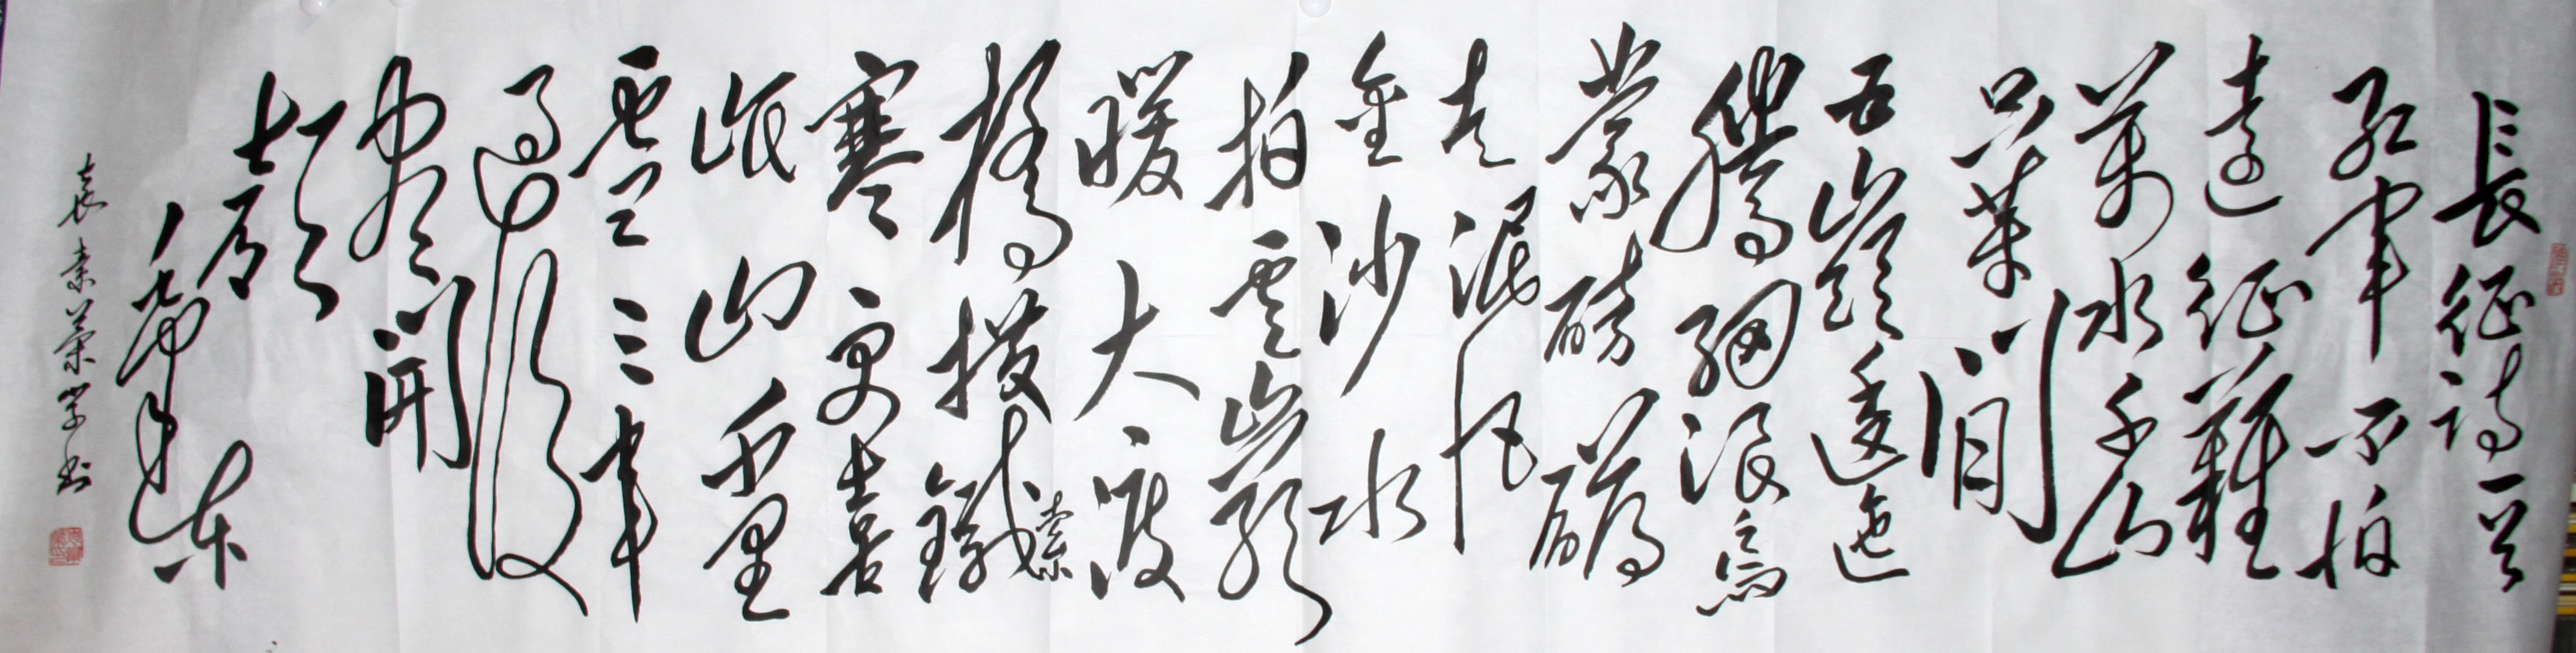 長征詩一首
紅軍不怕
遠征難
萬水千山
只等閒
五嶺逶迤
騰細浪烏
蒙磅礴
走泥丸
金沙水
拍雲崖
暖大渡
橋橫鐵索
寒更喜
岷山千里
雪三軍
過後
盡開
顏
毛澤東
袁素榮學書